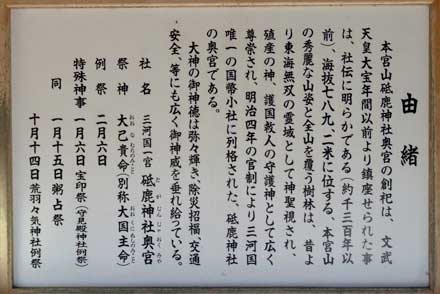 由緒
本宮山砥鹿神社奥宮の創祀は、文武
天皇大宝年間以前より鎮座せられた事
は、社伝に明らかである（約千三百年以
前）、海抜七八九、二米に位する、本宮山
の秀麗な山姿と全山を覆う樹林は、昔よ
り東海無双の霊域として神聖視され、
殖産の神、護国救人の守護神として広く
尊崇され、明治四年の官制により三河国
唯一の国幣小社に列格された、砥鹿神社
の奥宮である。
大神の御神徳は弥々輝き、除災招福、交通
安全、等にも広く御神威を垂れ給っている。
社名 三河国一宮 砥鹿神社奥宮
祭神 大己貴命（別称 大国主命）
例祭 二月六日
特殊神事 一月六日 宝印祭（守見殿神社例祭）
同 一月十五日 粥占祭
十月十四日 荒羽々気神社例祭